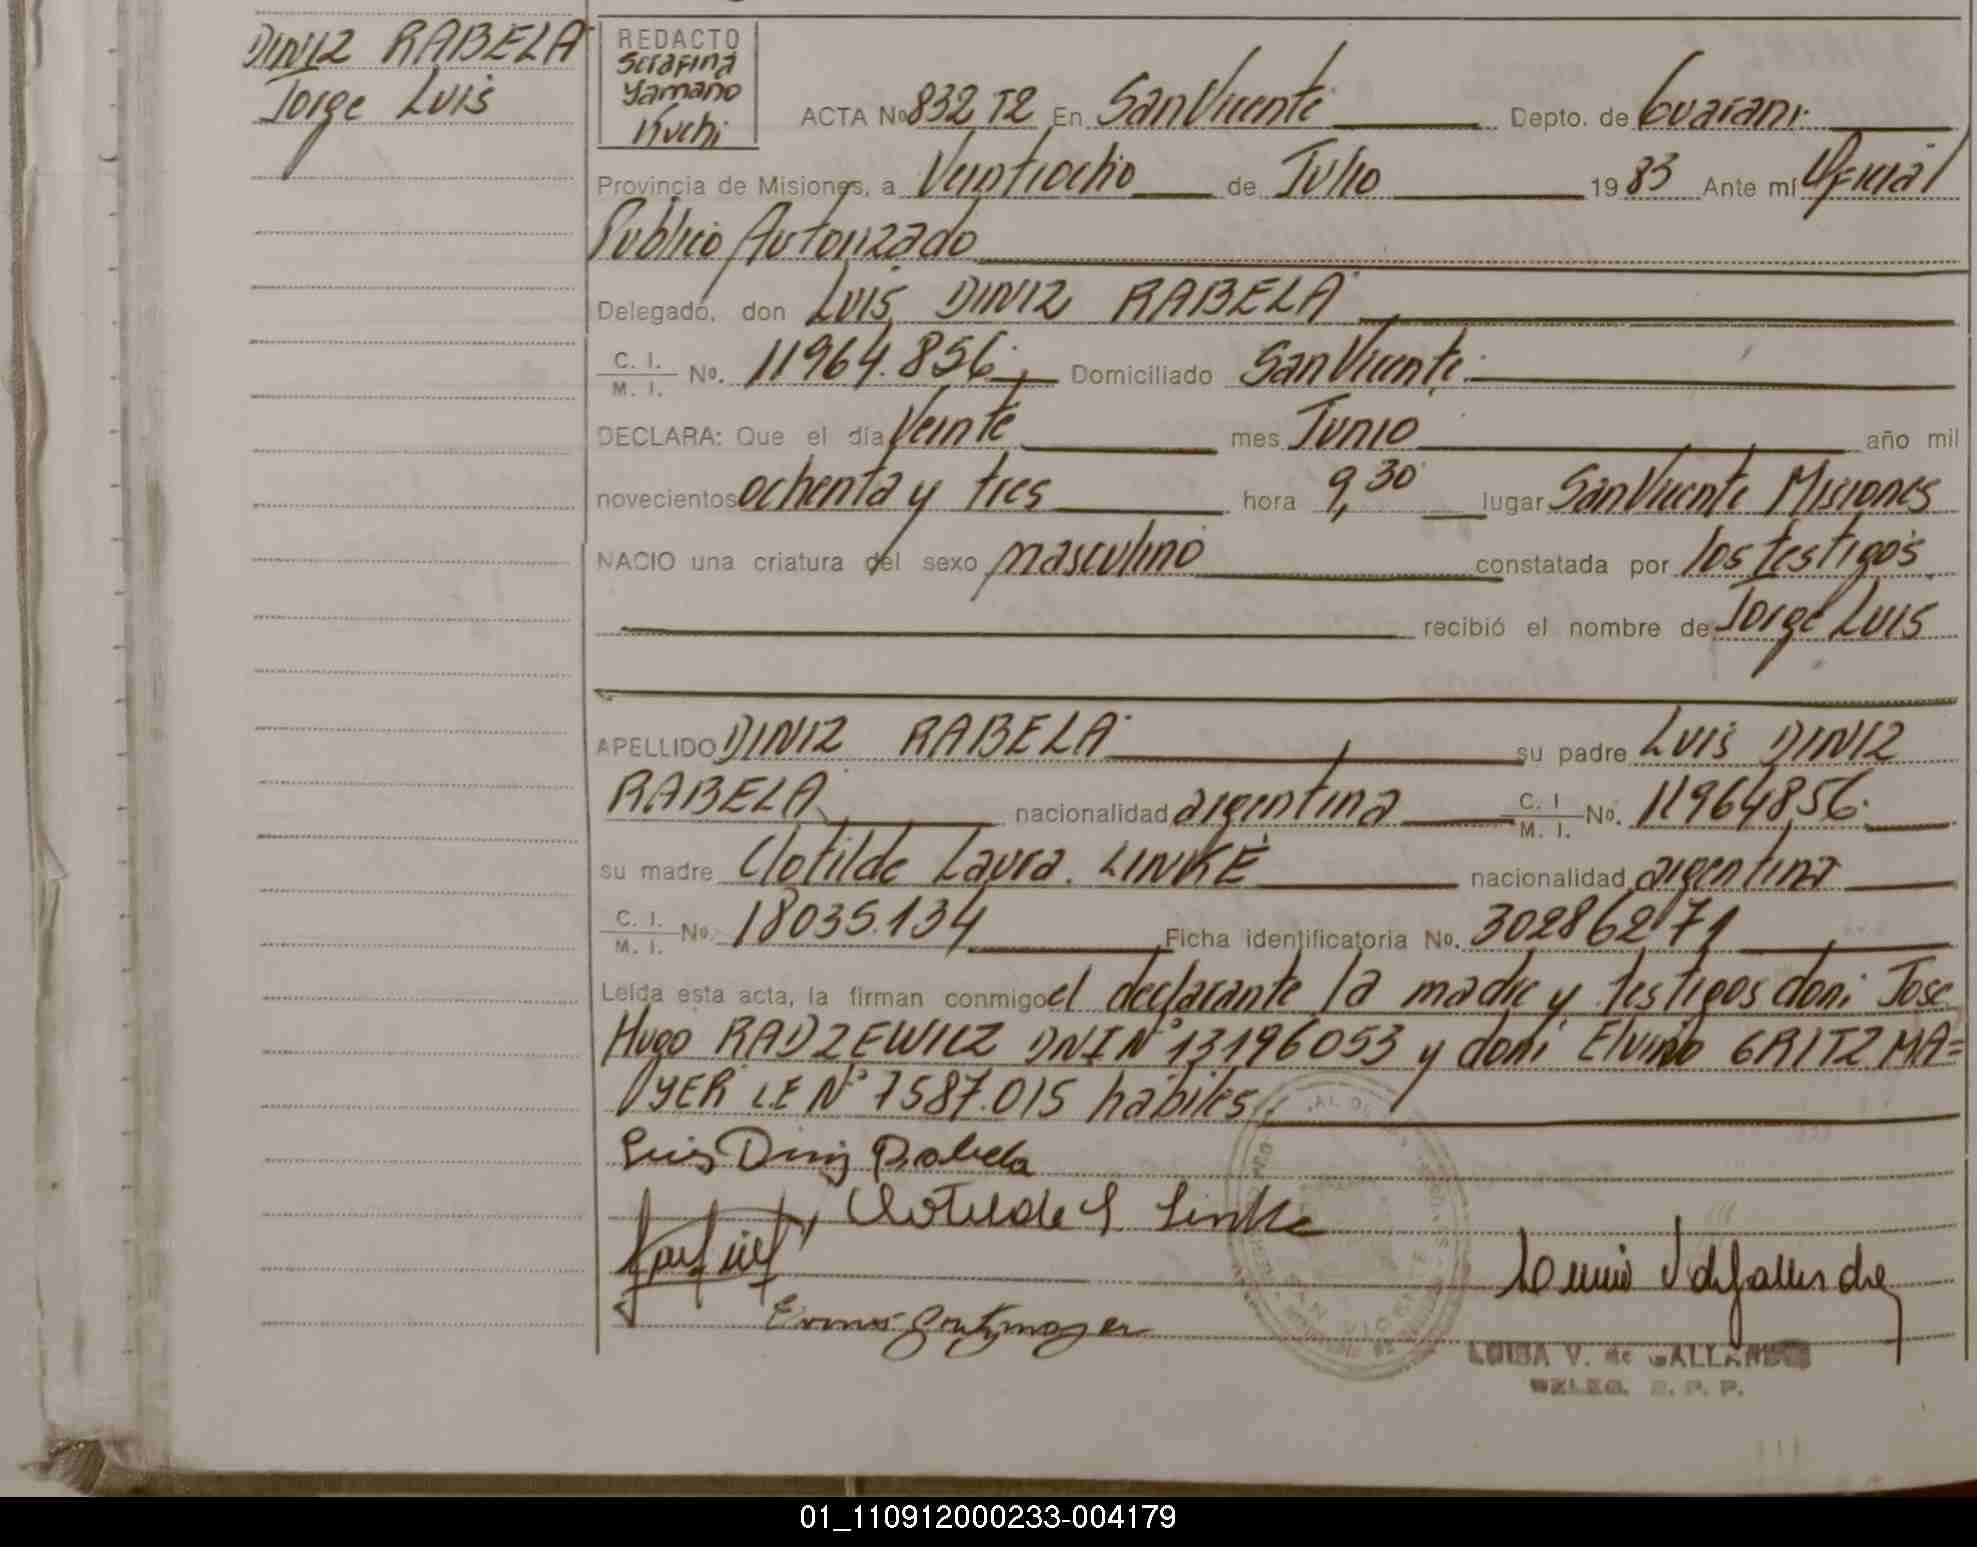 DINIZ RABELA
Jorge Luis
REDACTO
Serafina
Yamaño
Kuchi
ACTA No 832 T2 En San Vicente Depto. de Guaraní
Provincia de Misiones, a Veintiocho de Julio 1983 Ante mí Oficial
Público Autorizado
Delegado, don Luis DINIZ RABELA
C. I. / M. I. No. 11964.856 Domiciliado San Vicente
DECLARA: Que el día Veinte mes Junio año mil
novecientos ochenta y tres hora 9,30 lugar San Vicente Misiones
NACIO una criatura del sexo masculino constatada por los testigos
recibió el nombre de Jorge Luis
APELLIDO DINIZ RABELA su padre Luis DINIZ
RABELA nacionalidad argentina C. I / M. I. No. 11964856
su madre Clotilde Laura. LINKE nacionalidad argentina
C. I. / M. I. No. 18035.134 Ficha identificatoria No. 30286271
Leída esta acta, la firman conmigo el declarante la madre y testigos don: Jose
Hugo RADZEWICZ DNI N° 13196053 y don: Elvino GRITZMA=
YER LE N° 7587.015 hábiles
Luis Diniz Rabela
Clotilde L Linke
LUISA V. de GALLARDO
DELEG. R. P. P.
01_110912000233-004179